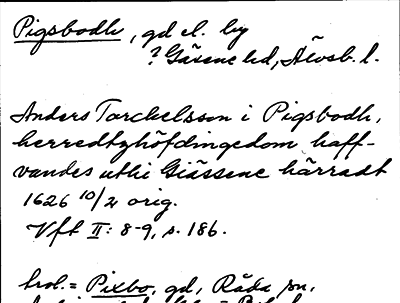 Pigsbodh, gd el. by
? Gäsene hd, Älvsb. l.
Anders Torckelsson i Pigsbodh,
herredtzhöfdingedom haff-
vandes uthi Giässene härradt
1626 10/2 orig.
Vft II: 8-9, s. 186.
trol. = Pixbo, gd, Råda sn,